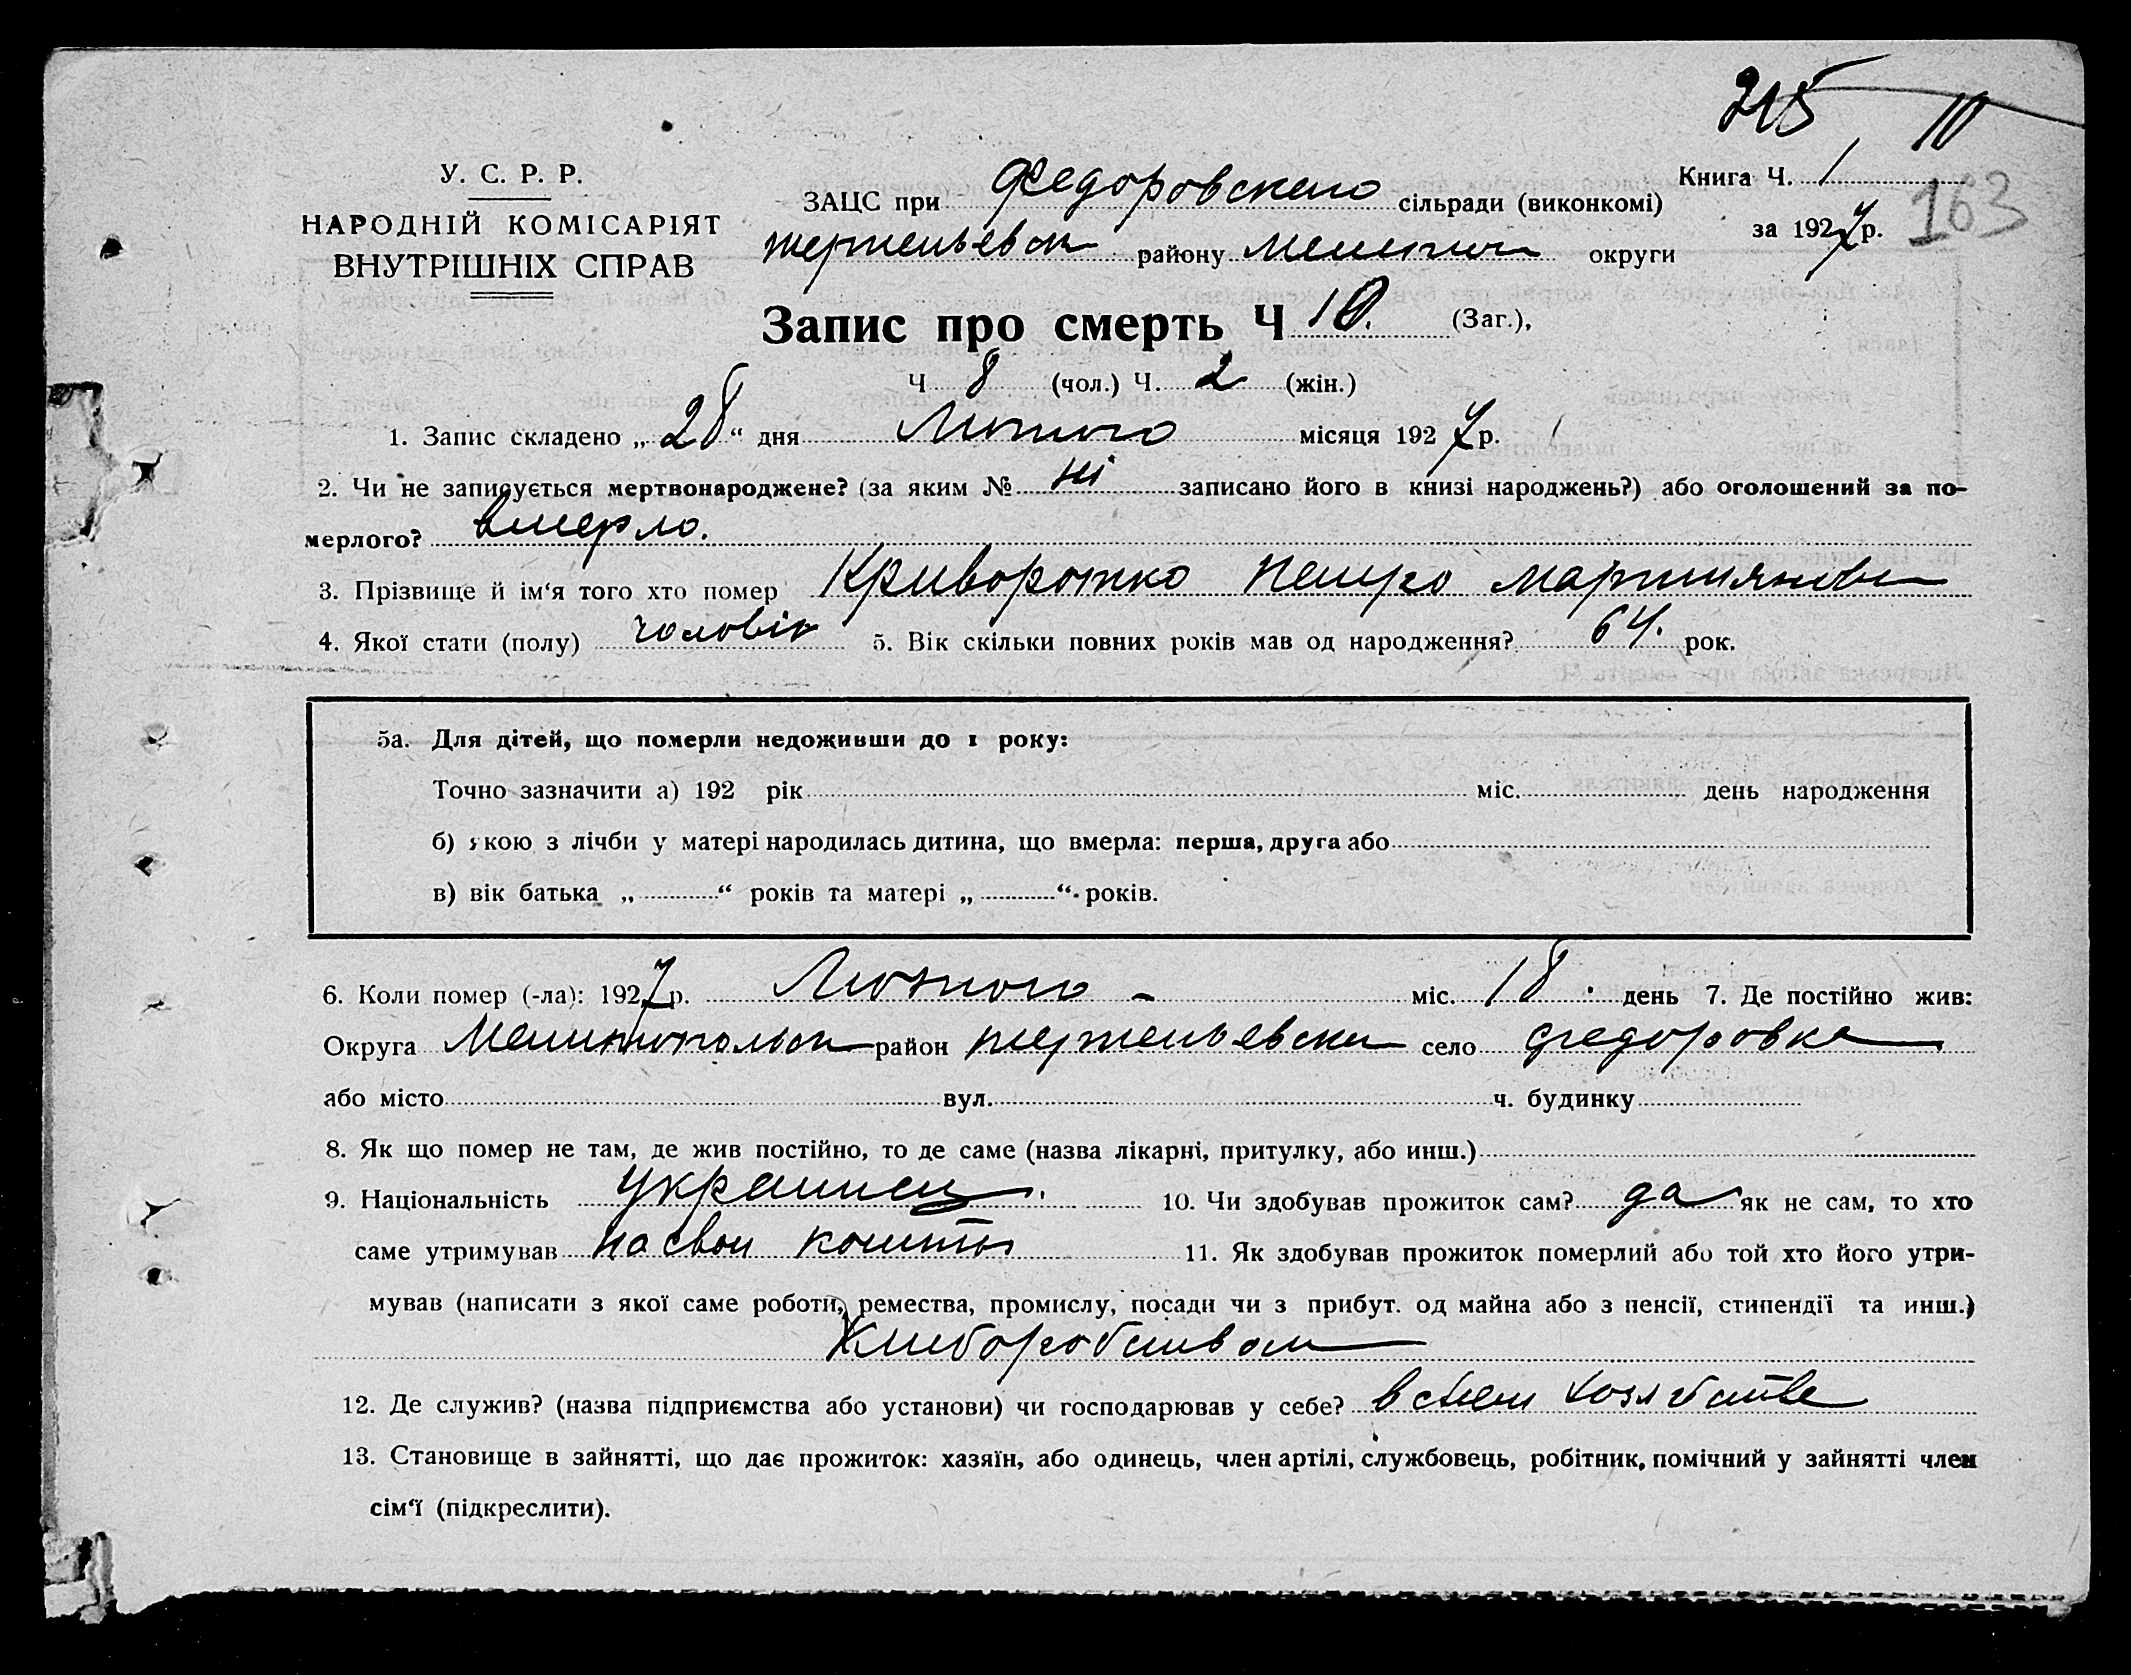 215 10
У. С. Р. Р.
НАРОДНІЙ КОМІСАРІЯТ
ВНУТРІШНІХ СПРАВ
ЗАЦС при Федоровского сільради (виконкомі)
району округи
Книга Ч. 1
за 1927 р.
163
Запис про смерть Ч 10. (Заг.),
Ч 8 (чол.) Ч. 2 (жін.)
1. Запис складено „28“ дня Лютого місяця 1927 р.
2. Чи не записується мертвонароджене? (за яким № ні записано його в книзі народжень?) або оголошений за по-
мерлого? вмерло.
3. Прізвище й ім‘я того хто помер Криворотко Петро
4. Якої стати (полу) чоловік 5. Вік скільки повних років мав од народження? 64. рок.
5а. Для дітей, що померли недоживши до 1 року:
Точно зазначити а) 192 рік міс. день народження
б) якою з лічби у матері народилась дитина, що вмерла: перша, друга або
в) вік батька „ “ років та матері „ “ років.
6. Коли помер (-ла): 1927 р. Лютого - міс. 18. день 7. Де постійно жив:
Округа Мелитопольск район село Федоровка
або місто вул. ч. будинку
8. Як що помер не там, де жив постійно, то де саме (назва лікарні, притулку, або инш.)
9. Національність Украинец. 10. Чи здобував прожиток сам? да як не сам, то хто
саме утримував на свои кошты 11. Як здобував прожиток померлий або той хто його утри-
мував (написати з якої саме роботи, ремества, промислу, посади чи з прибут. од майна або з пенсії, стипендії та инш.)
Хлиборобством
12. Де служив? (назва підприємства або установи) чи господарював у себе? в своем хозяйстве
13. Становище в зайнятті, що дає прожиток: хазяїн, або одинець, член артілі, службовець, робітник, помічний у зайнятті член
сім‘ї (підкреслити).